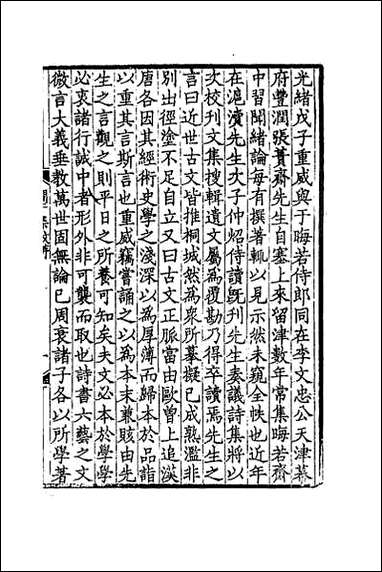 光緒戊子重威與于晦若侍郎同在李文忠公天津幕
府豐潤張蕢齋先生自塞上來留津數年常集晦若齋
中習聞緒論每有撰著輒以見示然未窺全帙也近年
在滬瀆先生次子仲炤侍讀旣刊先生奏議詩集將以
次校刊文集搜輯遺文屬為覆勘乃得卒讀焉先生之
言曰近世古文皆推桐城然為衆所摹擬已成熟濫非
別出徑塗不足自立又曰古文正脈當由歐曾上追漢
唐各因其經術史學之淺深以為厚薄而歸本於品詣
以重其言斯言也重威竊嘗誦之以為本末兼賅由先
生之言觀之則平日之所養可知矣夫文必本於學學
必衷諸行誠中者形外非可襲而取也詩書六藝之文
微言大義垂敎萬世固無論已周衰諸子各以所學著